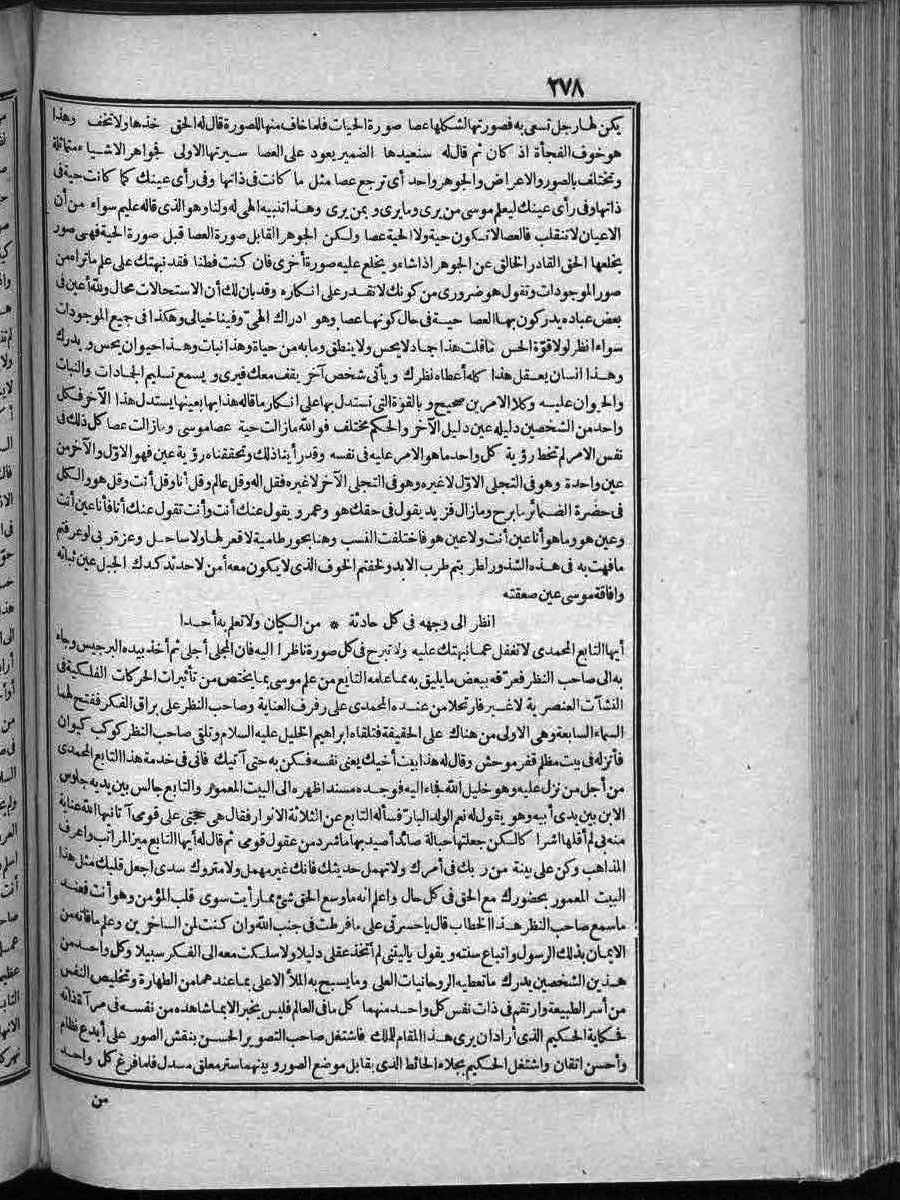 ٢٧٨
يكن لها رجل تسعى به فصورتها لشكلها عصا صورة الحيات فلما خاف منها للصورة قال له الحق خذها ولا تخف وهذا
هو خوف الفجأة اذ كان ثم قال له سنعيدها الضمير يعود على العصا سيرتها الاولى فجواهر الاشياء متماثلة
وتختلف بالصور والاعراض والجوهر واحد أى ترجع عصا مثل ما كانت فى ذاتها وفى رأى عينك كما كانت حية فى
ذاتها وفى رأى عينك ليعلم موسى من يرى وما يرى وبمن يرى وهذا تنبيه الهى له ولنا وهو الذى قاله عليم سواء من أن
الاعيان لا تنقلب فالعصا لا تكون حية ولا الحية عصا ولكن الجوهر القابل صورة العصا قبل صورة الحية فهى صور
يخلعها الحق القادر الخالق عن الجوهر اذا شاء ويخلع عليه صورة أخرى فان كنت فطنا فقد نبهتك على علم ما تراه من
صور الموجودات وتقول هو ضرورى من كونك لا تقدر على انكاره وقد بان لك أن الاستحالات محال ولله أعين فى
بعض عباده يدركون بها العصا حية فى حال كونها عصا وهو ادراك الهىّ وفينا خيالى وهكذا فى جميع الموجودات
سواء انظر لولا قوّة الحس ما قلت هذا جماد لا يحس ولا ينطق وما به من حياة وهذا نبات وهذا حيوان يحس ويدرك
وهذا انسان يعقل هذا كله أعطاه نظرك ويأتى شخص آخر يقف معك فيرى ويسمع تسليم الجمادات والنبات
والحيوان عليه وكلا الامرين صحيح وبالقوّة التى تستدل بها على انكار ما قاله هذا بها بعينها يستدل هذا الآخر فكل
واحد من الشخصين دليله عين دليل الآخر والحكم مختلف فوالله ما زالت حية عصا موسى وما زالت عصا كل ذلك فى
نفس الامر لم تخط رؤية كل واحد ما هو الامر عليه فى نفسه وقد رأينا ذلك وتحققناه رؤية عين فهو الاوّل والآخر من
عين واحدة وهو فى التجلى الاوّل لا غيره وهو فى التجلى الآخر لا غيره فقل اله وقل عالم وقل أنا وقل أنت وقل هو والكل
فى حضرة الضمائر ما برح وما زال فزيد يقول فى حقك هو وعمرو يقول عنك أنت وأنت تقول عنك أنا فأنا عين أنت
وعين هو وما هو أنا عين أنت ولا عين هو فاختلفت النسب وهنا بحور طامية لا قعر لها ولا ساحل وعزة ربى لو عرفتم
ما فهت به فى هذه الشذور لطربتم طرب الابد ولخفتم الخوف الذى لا يكون معه أمن لاحد تدكدك الجبل عين ثباته
وافاقة موسى عين صعقته
انظر الى وجهه فى كل حادثة * من الكيان ولا تعلم به أحدا
أيها التابع المحمدى لا تغفل عما نبهتك عليه ولا تبرح فى كل صورة ناظرا اليه فان المجلى أجلى ثم أخذ بيده البرجيس وجاء
به الى صاحب النظر فعرّفه ببعض ما يليق به مما علمه التابع من علم موسى بما يختص من تأثيرات الحركات الفلكية فى
النشآت العنصرية لا غير فارتحلا من عنده المحمدى على رفرف العناية وصاحب النظر على براق الفكر ففتح لهما
السماء السابعة وهى الاولى من هناك على الحقيقة فتلقاه ابراهيم الخليل عليه السلام وتلقى صاحب النظر كوكب كيوان
فأنزله فى بيت مظلم قفر موحش وقال له هذا بيت أخيك يعنى نفسه فكن به حتى آتيك فانى فى خدمة هذا التابع المحمدى
من أجل من نزل عليه وهو خليل الله فجاء اليه فوجده مسندا ظهره الى البيت المعمور والتابع جالس بين يديه جلوس
الابن بين يدى أبيه وهو يقول له نعم الولد البارّ فسأله التابع عن الثلاثة الانوار فقال هى حجتى على قومى آتانيها الله عناية
منه فى لم أقلها اشرا كالكن جعلتها حبالة صائد أصيد بها ما شرد من عقول قومى ثم قال له أيها التابع ميز المراتب واعرف
المذاهب وكن على بينة من ربك فى أمرك ولا تهمل حديثك فانك غير مهمل ولا متروك سدى اجعل قلبك مثل هذا
البيت المعمور بحضورك مع الحق فى كل حال واعلم انه ما وسع الحق شئ مما رأيت سوى قلب المؤمن وهو أنت فعند
ما سمع صاحب النظر هذا الخطاب قال يا حسرتى على ما فرطت فى جنب الله وان كنت لمن الساخرين وعلم ما فاته من
الايمان بذلك الرسول واتباع سنته ويقول يا ليتنى لم أتخذ عقلى دليلا ولا سلكت معه الى الفكر سبيلا وكل واحد من
هذين الشخصين يدرك ما تعطيه الروحانيات العلى وما يسبح به الملأ الاعلى بما عندهما من الطهارة وتخليص النفس
من أسر الطبيعة وارتقم فى ذات نفس كل واحد منهما كل ما فى العالم فليس يخبر الا بما شاهده من نفسه فى مرآة ذاته
فحكاية الحكيم الذى أراد ان يرى هذا المقام للملك فاشتغل صاحب التصوير الحسن بنقش الصور على أبدع نظام
وأحسن اتقان واشتغل الحكيم بجلاء الحائط الذى يقابل موضع الصور وبينهما ستر معلق مسدل فلما فرغ كل واحد
من